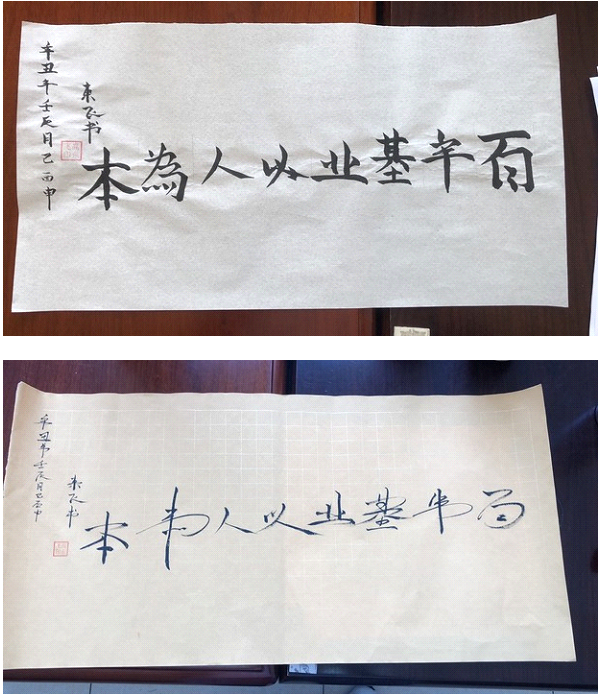 百年基业以人為本
東飞书
辛丑年壬辰月己酉申
百年基业以人為本
東飞书
辛丑年壬辰月己酉申